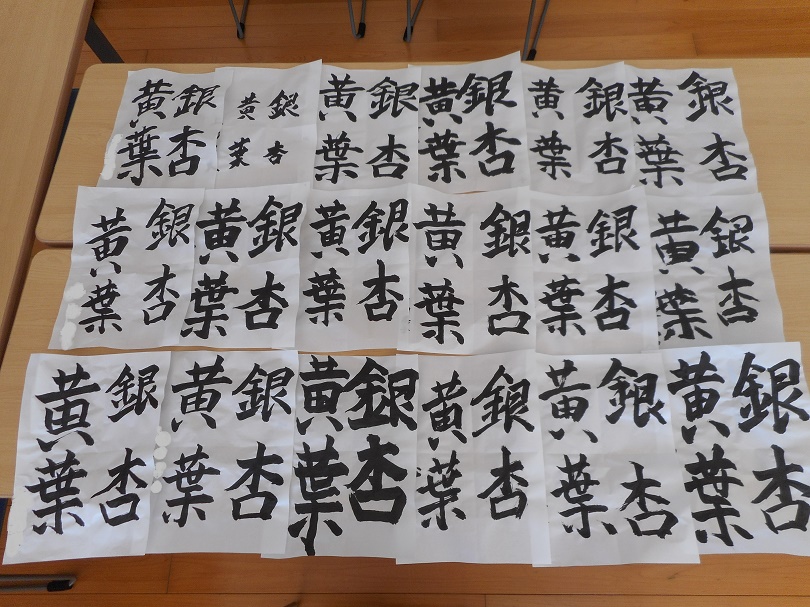 銀杏
黄葉
銀杏
黄葉
銀杏
黄葉
銀杏
黄葉
銀杏
黄葉
銀杏
黄葉
銀杏
黄葉
銀杏
黄葉
銀杏
黄葉
銀杏
黄葉
銀杏
黄葉
銀杏
黄葉
銀杏
黄葉
銀杏
黄葉
銀杏
黄葉
銀杏
黄葉
銀杏
黄葉
銀杏
黄葉